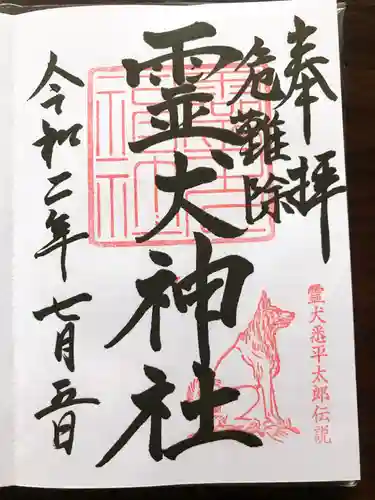 奉拝
危難除
霊犬神社
令和二年七月五日
霊犬悉平太郎伝説